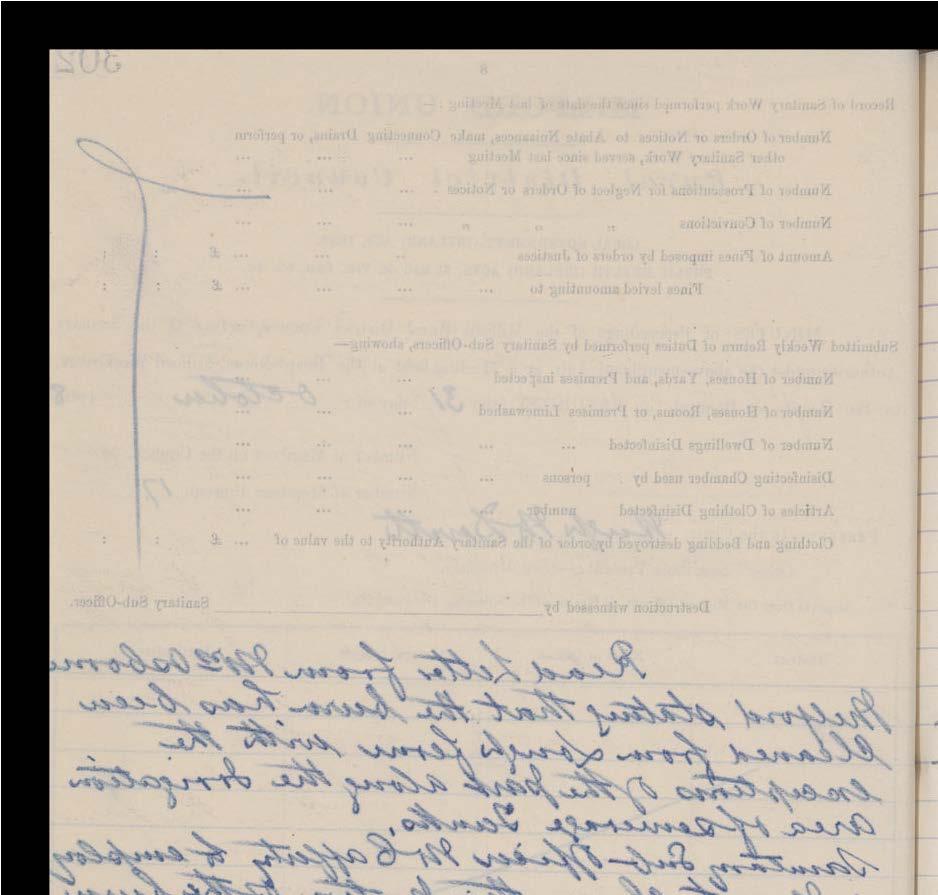 302
8
Record of Sanitary Work performed since the date of last Meeting :
Number of Orders or Notices to Abate Nuisances, make Connecting Drains, or perform
other Sanitary Work, served since last Meeting ... ... ...
Number of Prosecutions for Neglect of Orders or Notices ... ... ...
Number of Convictions " " " ... ... ...
Amount of Fines imposed by orders of Justices ... ... ... £ : :
Fines levied amounting to ... ... ... ... £ : :
Submitted Weekly Return of Duties performed by Sanitary Sub-Officers, showing—
Number of Houses, Yards, and Premises inspected ... ... ...
Number of Houses, Rooms, or Premises Limewashed ... ... ...
Number of Dwellings Disinfected ... ... ... ... ...
Disinfecting Chamber used by persons ... ... ... ...
Articles of Clothing Disinfected number ... ... ...
Clothing and Bedding destroyed by order of the Sanitary Authority to the value of ... £ : :
Destruction witnessed by Sanitary Sub-Officer.
Read Letter from Mr Osborne
Milford stating that the burn has been
cleaned from Lough ferne with the
exception of the part along the Irrigation
area of sewerage Tanks,
Sanitary Sub-Officer McCafferty to employ